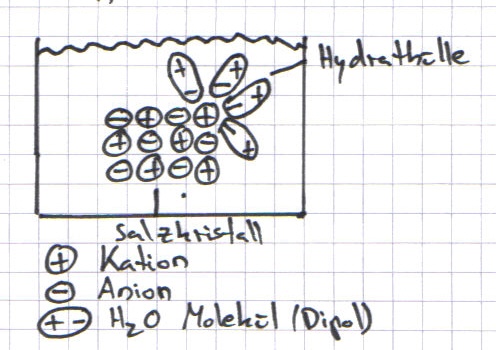 Hydrathülle
Salzkristall
⊕ Kation
⊖ Anion
(+-) H₂O Molekül (Dipol)